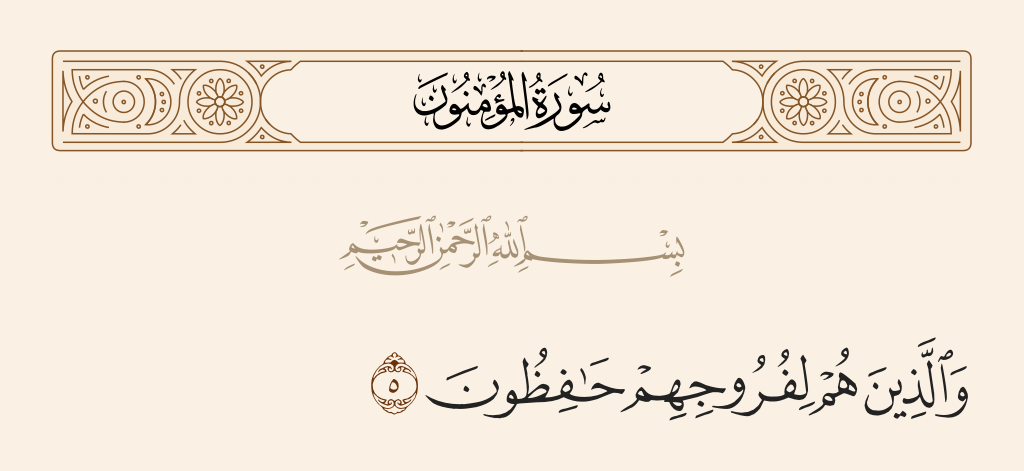 سُورَةُ المُؤْمِنُونَ
بِسْمِ ٱللَّهِ ٱلرَّحْمَٰنِ ٱلرَّحِيمِ
وَٱلَّذِينَ هُمْ لِفُرُوجِهِمْ حَٰفِظُونَ ٥